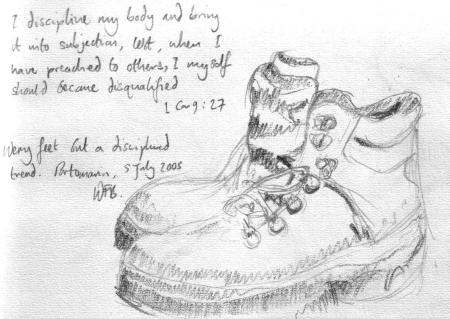 I discipline my body and bring
it into subjection, lest, when I
have preached to others, I myself
should become disqualified
1 Cor 9:27
Weary feet but a disciplined
tread. Portomarin, 5 July 2005
WFB.